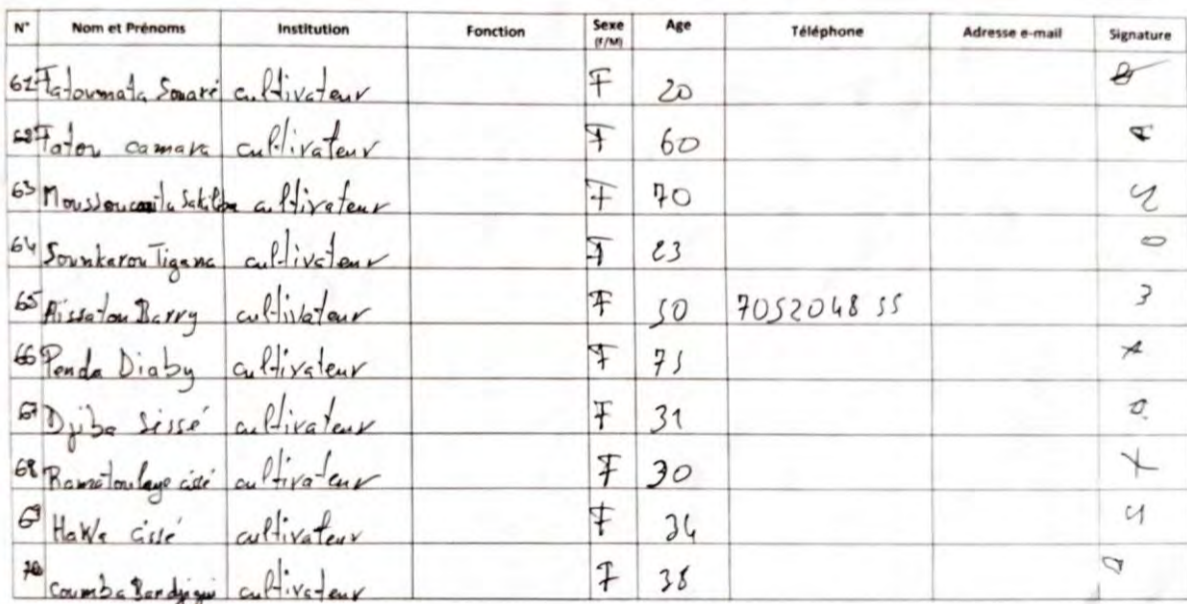 N° Nom et Prénoms Institution Fonction Sexe (F/M) Age Téléphone Adresse e-mail Signature
61 Fatoumata Souaré cultivateur F 20
62 Fatou camara cultivateur F 60
63 cultivateur F 70
64 Sounkarou Tigana cultivateur F 23
65 Aissatou Barry cultivateur F 50 705204855
66 Penda Diaby cultivateur F 75
67 Djiba Sissé cultivateur F 31
68 Ramatoulaye cissé cultivateur F 30
69 HaWa cissé cultivateur F 34
70 Coumba cultivateur F 38